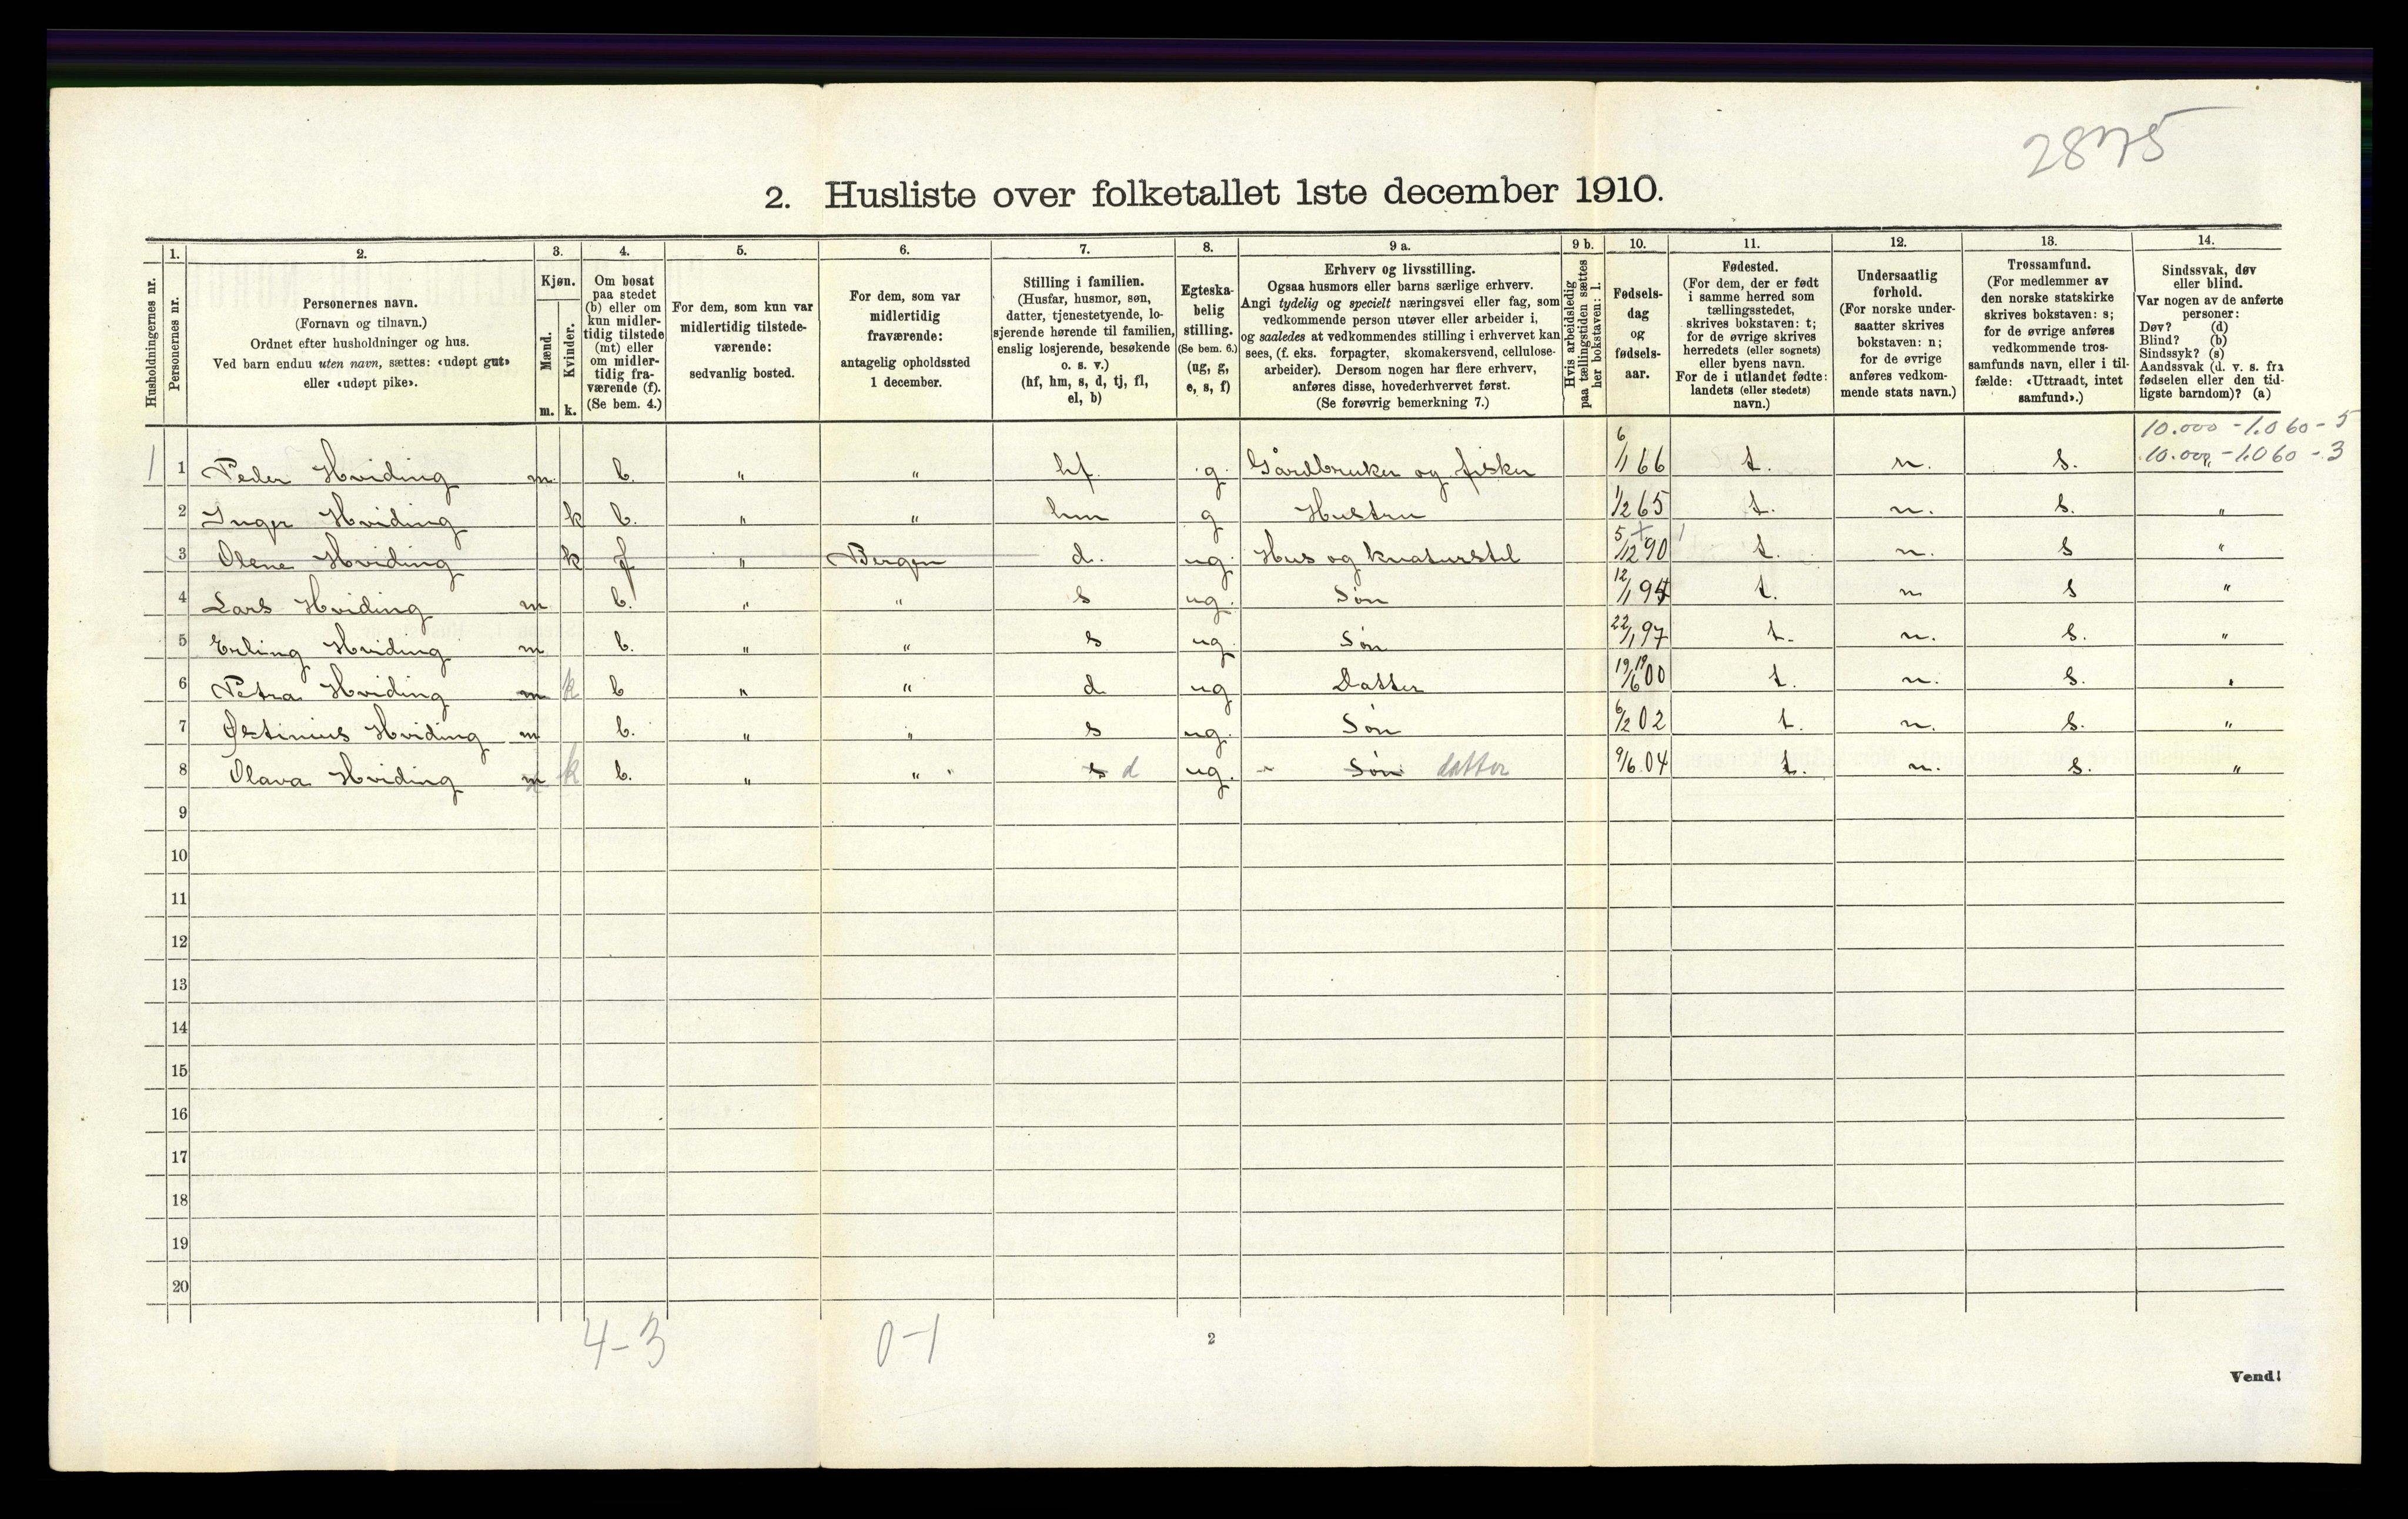 2875
2. Husliste over folketallet 1ste december 1910.
Husholdningernes nr.
1.
Personernes nr.
2.
Personernes navn.
(Fornavn og tilnavn.)
Ordnet efter husholdninger og hus.
Ved barn endnu uten navn, sættes: «udøpt gut»
eller «udøpt pike».
3.
Kjøn.
Mænd.
Kvinder.
m. k.
4.
Om bosat
paa stedet
(b) eller om
kun midler-
tidig tilstede
(mt) eller
om midler-
tidig fra-
værende (f).
(Se bem. 4.)
5.
For dem, som kun var
midlertidig tilstede-
værende:
sedvanlig bosted.
6.
For dem, som var
midlertidig
fraværende:
antagelig opholdssted
1 december.
7.
Stilling i familien.
(Husfar, husmor, søn,
datter, tjenestetyende, lo-
sjerende hørende til familien,
enslig losjerende, besøkende
o. s. v.)
(hf, hm, s, d, tj, fl,
el, b)
8.
Egteska-
belig
stilling.
(Se bem. 6.)
(ug, g,
e, s, f)
9 a.
Erhverv og livsstilling.
Ogsaa husmors eller barns særlige erhverv.
Angi tydelig og specielt næringsvei eller fag, som
vedkommende person utøver eller arbeider i,
og saaledes at vedkommendes stilling i erhvervet kan
sees, (f. eks. forpagter, skomakersvend, cellulose-
arbeider). Dersom nogen har flere erhverv,
anføres disse, hovederhvervet først.
(Se forøvrig bemerkning 7.)
9 b.
Hvis arbeidsledig
paa tællingstiden sættes
her bokstaven: l.
10.
Fødsels-
dag
og
fødsels-
aar.
11.
Fødested.
(For dem, der er født
i samme herred som
tællingsstedet,
skrives bokstaven: t;
for de øvrige skrives
herredets (eller sognets)
eller byens navn.
For de i utlandet fødte:
landets (eller stedets)
navn.)
12.
Undersaatlig
forhold.
(For norske under-
saatter skrives
bokstaven: n;
for de øvrige
anføres vedkom-
mende stats navn.)
13.
Trossamfund.
(For medlemmer av
den norske statskirke
skrives bokstaven: s;
for de øvrige anføres
vedkommende tros-
samfunds navn, eller i til-
fælde: «Uttraadt, intet
samfund».)
14.
Sindssvak, døv
eller blind.
Var nogen av de anførte
personer:
Døv? (d)
Blind? (b)
Sindssyk? (s)
Aandssvak (d. v. s. fra
fødselen eller den tid-
ligste barndom)? (a)
10.000 - 1.060 - 5
10.000 - 1.060 - 3
1 1 Peder Hviding m. b. " " hf. g. Gårdbruker og fisker 6/1 66 t. n. s. "
2 Inger Hviding k b. " " hm g Hustru 1/2 65 t. n. s. "
3 Olene Hviding k f " Bergen d. ug. Hus og kreaturstel 5/12 90 t. n. s "
4 Lars Hviding m b. " " s ug. Søn 12/1 94 t. n s "
5 Erling Hviding m b. " " s ug. Søn 22/1 97 t. n. s. "
6 Petra Hviding m k b " " d ug Datter 19/6 00 t. n. s. "
7 Østinius Hviding m b. " " s ug. Søn 6/2 02 t. n. s. "
8 Olava Hviding m k b. " " s d ug. - Søn datter 9/6 04 t. n. s. "
9
10
11
12
13
14
15
16
17
18
19
20
4-3 0-1
2
Vend!